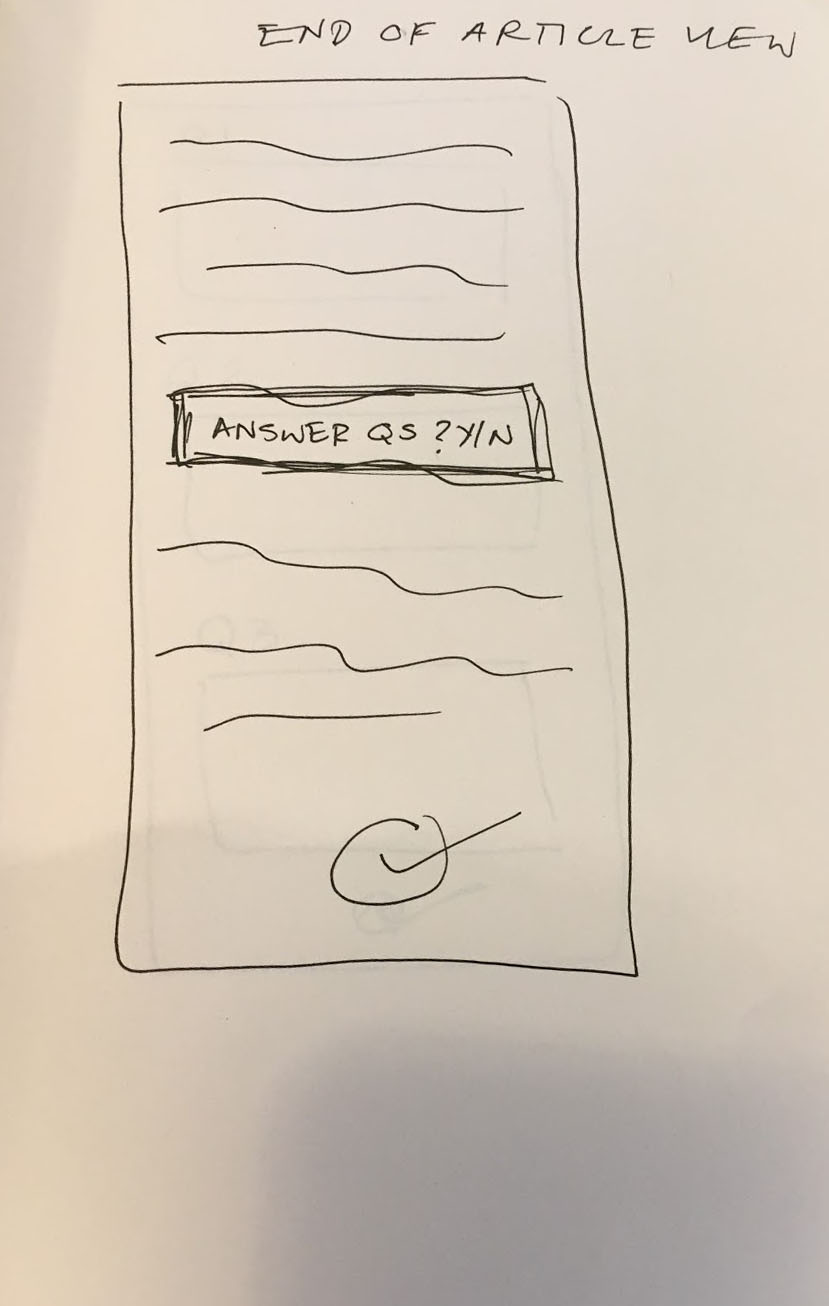 END OF ARTICLE VIEW
ANSWER QS ? Y/N